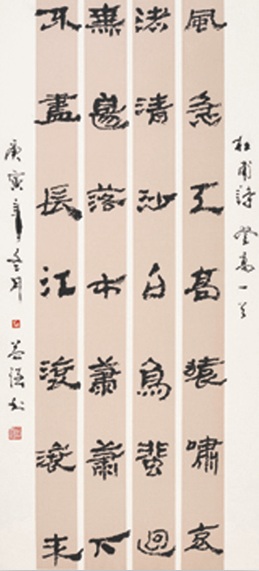 杜甫詩 登高一首
風急天高猿嘯哀
渚清沙白鳥蜚迴
無邊落木蕭蕭下
不盡長江滚滚来
庚寅年冬月
书